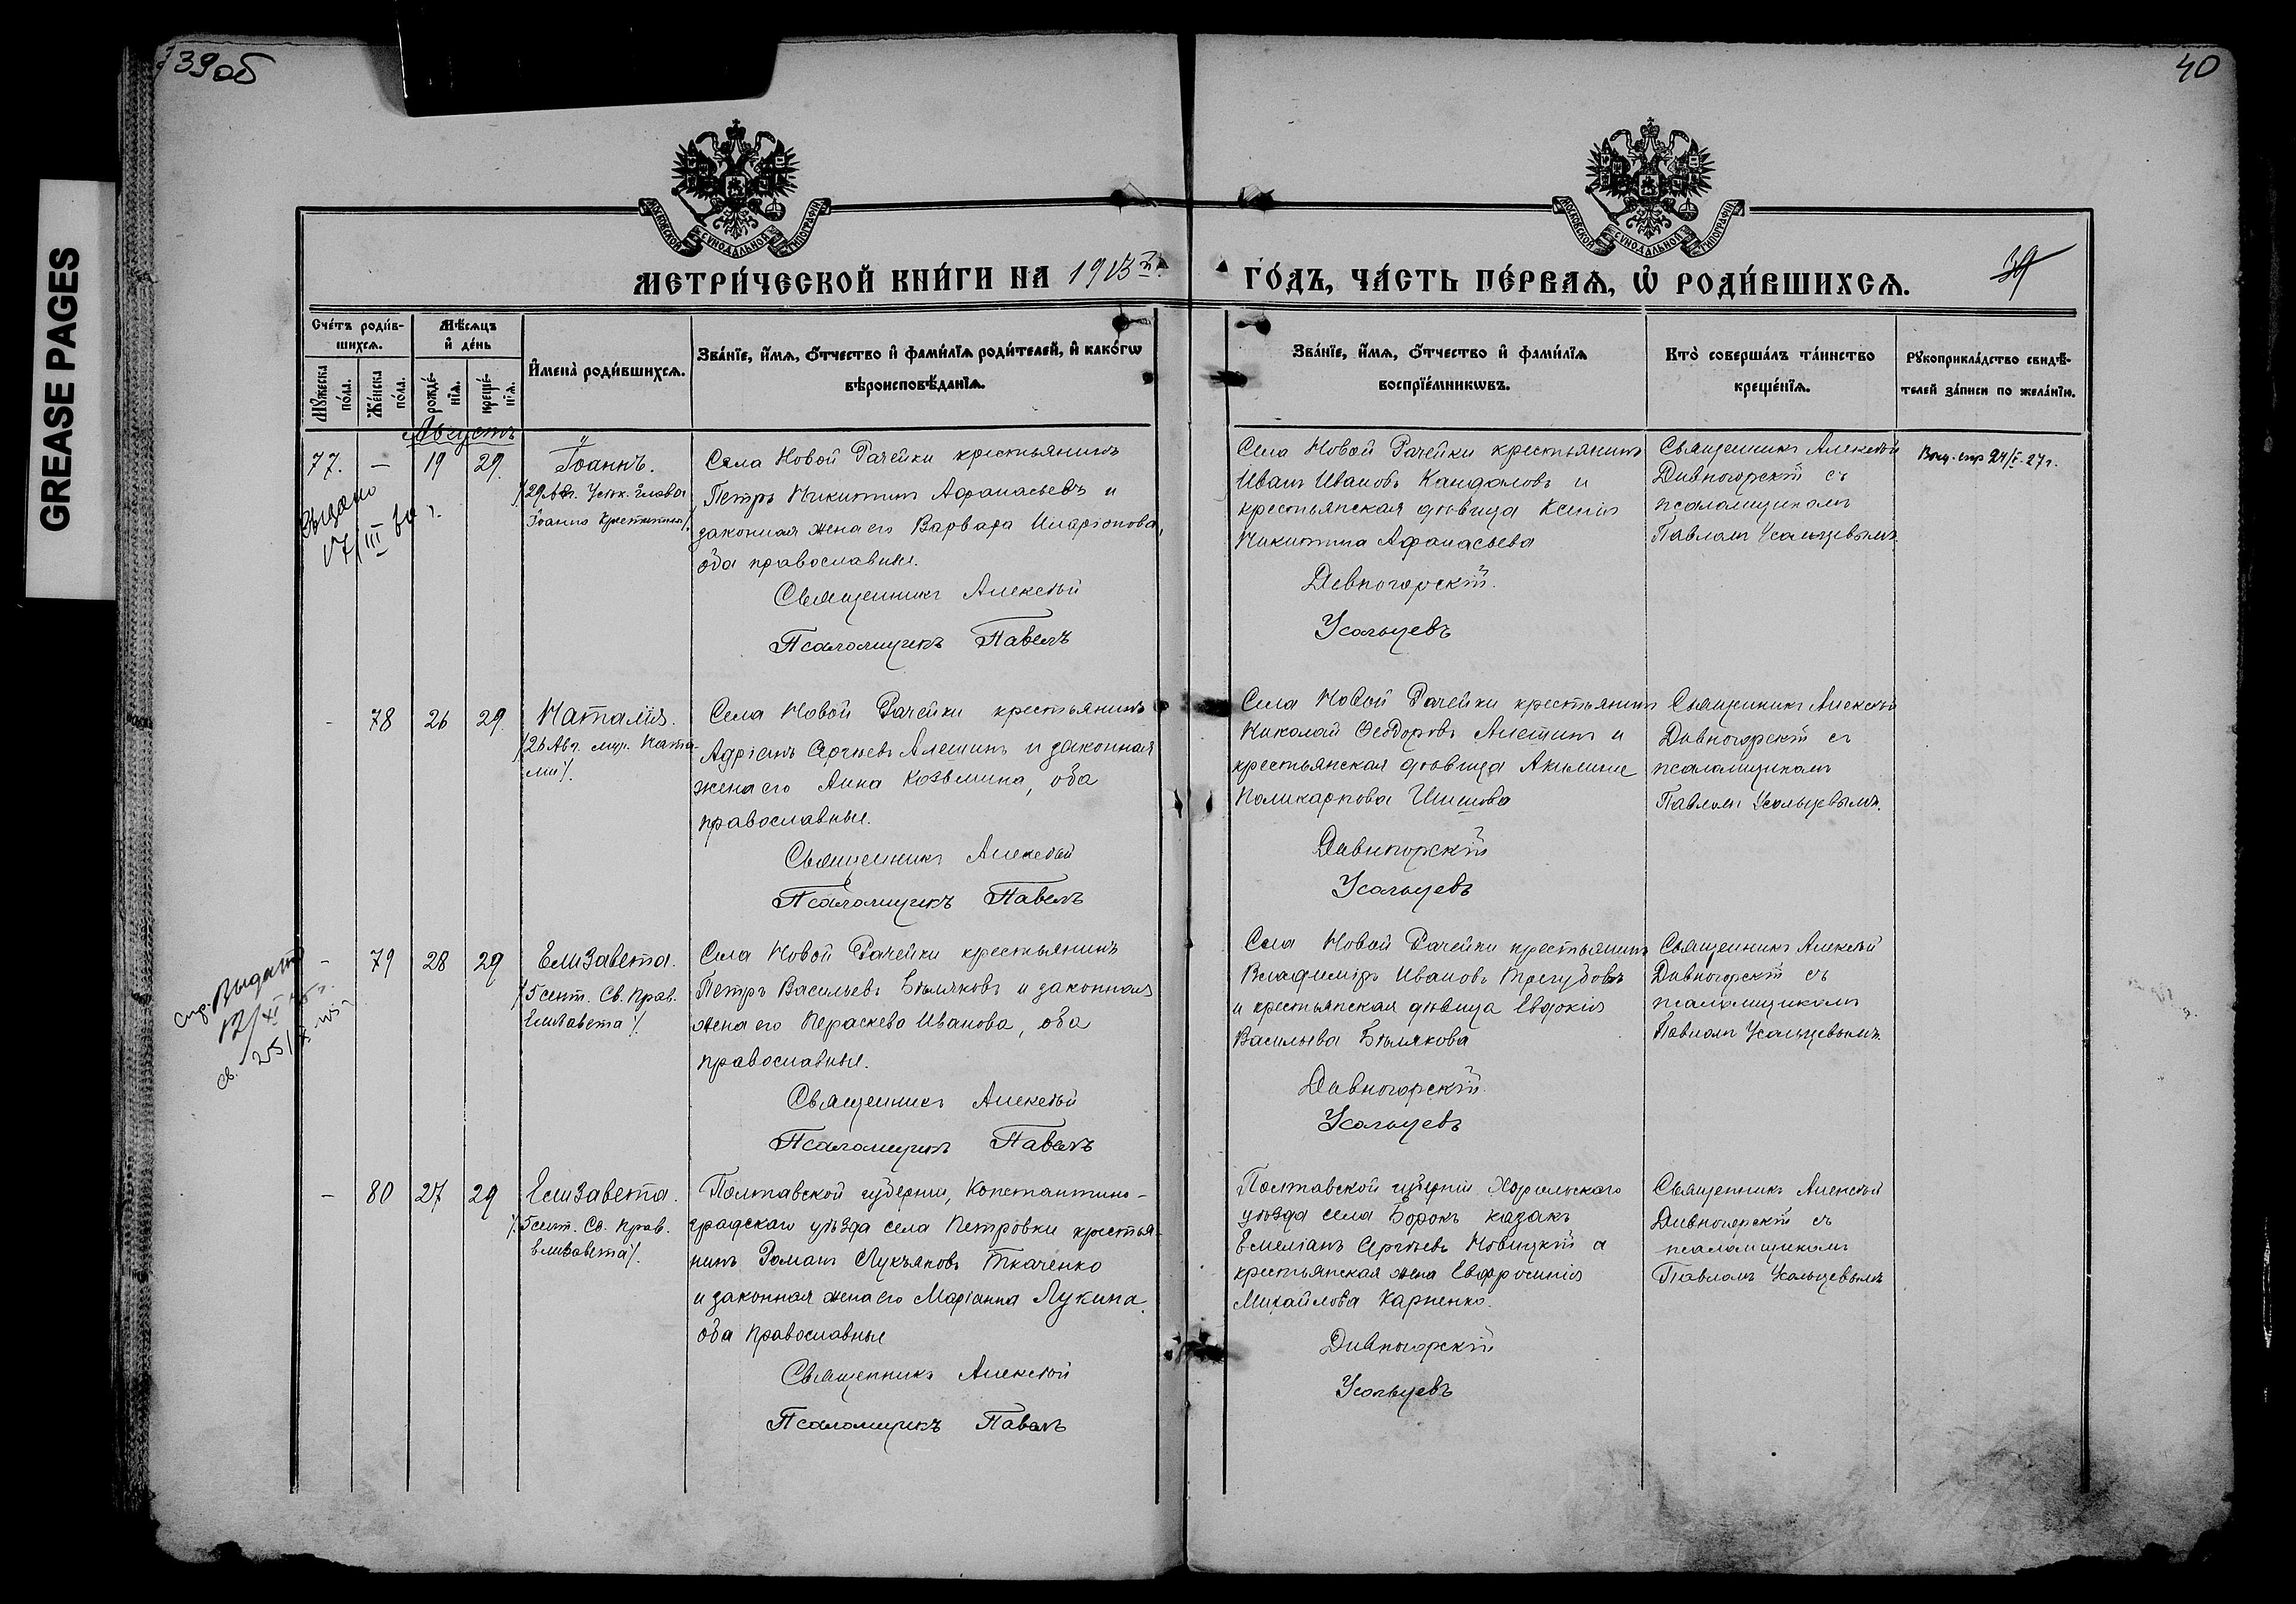 39об
40
GREASE PAGES
МОСКОВСКОЙ СѴНОДАЛЬНОЙ ТИПОГРАФІИ
МОСКОВСКОЙ СѴНОДАЛЬНОЙ ТИПОГРАФІИ
МЕТРИ́ЧЕСКОЙ КНИ́ГИ НА 1913й
ГО́ДЪ, ЧА́СТЬ ПЕ́РВАѦ, Ѡ҆ РОДИ́ВШИХСѦ.
39
Сче́тъ роди́в-
шихсѧ.
Мѣ́сѧцъ
и҆ де́нь
Мꙋ́жеска
по́ла.
Же́нска
по́ла.
рожде́-
нїѧ.
креще́-
нїѧ.
И҆мена̀ роди́вшихсѧ.
Зва́нїе, и҆́мѧ, ѻ҆́тчество и҆ фами́лїѧ роди́телей, и҆ како́гѡ
вѣроисповѣ́данїѧ.
Зва́нїе, и҆́мѧ, ѻ҆́тчество и҆ фами́лїѧ
воспрїе́мникѡвъ.
Кто̀ соверша́лъ та́инство
креще́нїѧ.
Рꙋкоприкла́дство свидѣ́-
телей за́писи по жела́нїю.
Августъ
77. — 19 29. Іоаннъ.
/29 Авг. Усѣк. главы
Іоанна Крестителя/.
Выдано
17/III
Села Новой Рачейки крестьянинъ
Петръ Никитинъ Афанасьевъ и
законная жена его Варвара Иларіонова,
оба православные.
Священникъ Алексѣй
Псаломщикъ Павелъ
Села Новой Рачейки крестьянинъ
Иванъ Ивановъ Кандаловъ и
крестьянская дѣвица Ксенія
Никитина Афанасьева
Дивногорскій.
Усольцевъ
Священникъ Алексѣй
Дивногорскій съ
псаломщикомъ
Павломъ Усольцевымъ
27г.
- 78 26 29. Наталія.
/26 Авг. муч. Ната-
ліи/.
Села Новой Рачейки крестьянинъ
Адріанъ Сергѣевъ Алешинъ и законная
жена его Анна Козьмина, оба
православные.
Священникъ Алексѣй
Псаломщикъ Павелъ
Села Новой Рачейки крестьянинъ
Николай Ѳеодоровъ Алешинъ и
крестьянская дѣвица
Поликарпова Шишова
Дивногорскій
Усольцевъ
Священникъ Алексѣй
Дивногорскій съ
псаломщикомъ
Павломъ Усольцевымъ.
- 79 28 29 Елизавета.
/5 сент. Св. Прав.
Елизавета/.
спр. Выдано
12/XI
св. 25/
Села Новой Рачейки крестьянинъ
Петръ Васильевъ Бѣляковъ и законная
жена его Параскева Иванова, оба
православные.
Священникъ Алексѣй
Псаломщикъ Павелъ
Села Новой Рачейки крестьянинъ
Владиміръ Ивановъ Трегубовъ
и крестьянская дѣвица Евдокія
Васильева Бѣлякова
Дивногорскій.
Усольцевъ
Священникъ Алексѣй
Дивногорскій съ
псаломщикомъ
Павломъ Усольцевымъ.
- 80 27 29 Елизавета.
/5 сент. Св. прав.
Елизавета/.
Полтавской губерніи, Константино-
градскаго уѣзда села Петровки крестья-
нинъ Романъ Лукъяновъ Ткаченко
и законная жена его Маріанна Лукина,
оба православные
Священникъ Алексѣй
Псаломщикъ Павелъ
Полтавской губерніи Хорольскаго
уѣзда села Борокъ казакъ
Емеліанъ Сергѣевъ Новицкій и
крестьянская жена Евфросинія
Михайлова Карпенко.
Дивногорскій
Усольцевъ
Священникъ Алексѣй
Дивногорскій съ
псаломщикомъ
Павломъ Усольцевымъ